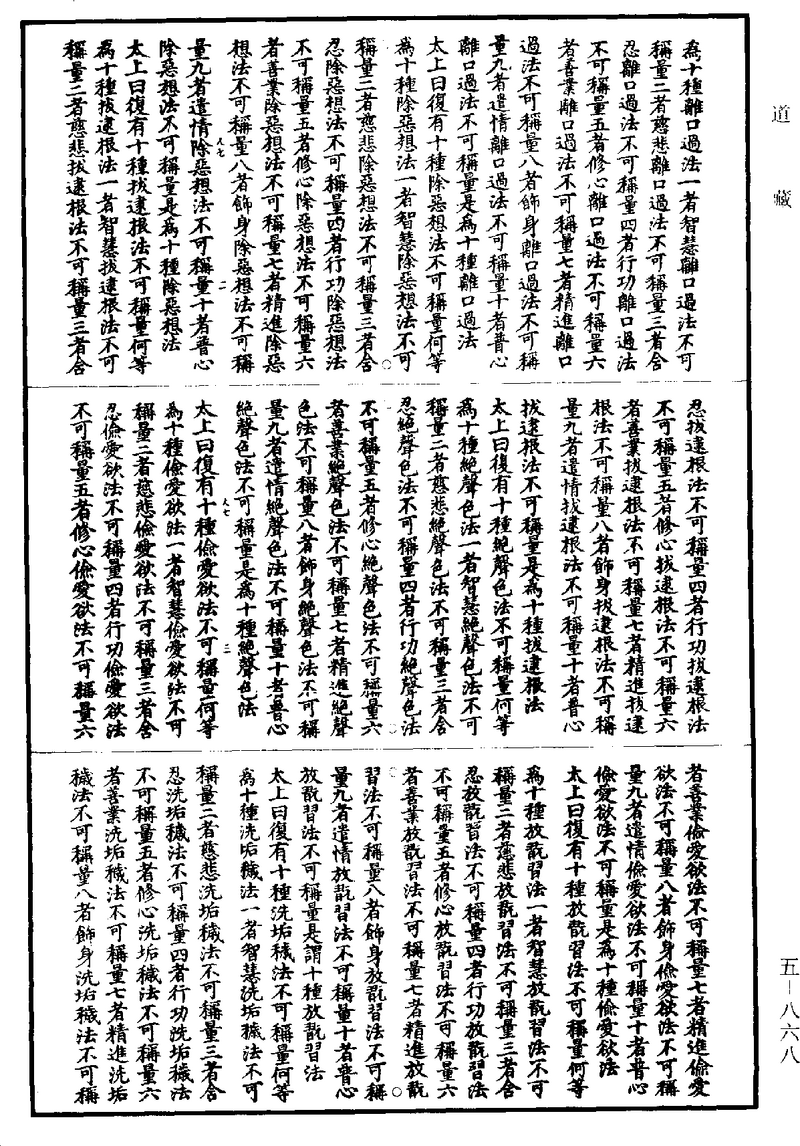 道藏
五－八六八
為十種離口過法一者智慧離口過法不可
稱量二者慈悲離口過法不可稱量三者含
忍離口過法不可稱量四者行功離口過法
不可稱量五者修心離口過法不可稱量六
者善業離口過法不可稱量七者精進離口
過法不可稱量八者飾身離口過法不可稱
量九者遣情離口過法不可稱量十者普心
離口過法不可稱量是為十種離口過法
太上曰復有十種除惡想法不可稱量何等
為十種除惡想法一者智慧除惡想法不可
稱量二者慈悲除惡想法不可稱量三者含
忍除惡想法不可稱量四者行功除惡想法
不可稱量五者修心除惡想法不可稱量六
者善業除惡想法不可稱量七者精進除惡
想法不可稱量八者飾身除惡想法不可稱
尺七 二
量九者遣情除惡想法不可稱量十者普心
除惡想法不可稱量是為十種除惡想法
太上曰復有十種拔逮根法不可稱量何等
為十種拔逮根法一者智慧拔逮根法不可
稱量二者慈悲拔逮根法不可稱量三者含
忍拔逮根法不可稱量四者行功拔逮根法
不可稱量五者修心拔逮根法不可稱量六
者善業拔逮根法不可稱量七者精進拔逮
根法不可稱量八者飾身拔逮根法不可稱
量九者遣情拔逮根法不可稱量十者普心
拔逮根法不可稱量是為十種拔逮根法
太上曰復有十種絕聲色法不可稱量何等
為十種絕聲色法一者智慧絕聲色法不可
稱量二者慈悲絕聲色法不可稱量三者含
忍絕聲色法不可稱量四者行功絕聲色法
不可稱量五者修心絕聲色法不可稱量六
者善業絕聲色法不可稱量七者精進絕聲
色法不可稱量八者飾身絕聲色法不可稱
量九者遣情絕聲色法不可稱量十者普心
絕聲色法不可稱量是為十種絕聲色法
尺七 三
太上曰復有十種儉愛欲法不可稱量何等
為十種儉愛欲法一者智慧儉愛欲法不可
稱量二者慈悲儉愛欲法不可稱量三者含
忍儉愛欲法不可稱量四者行功儉愛欲法
不可稱量五者修心儉愛欲法不可稱量六
者善業儉愛欲法不可稱量七者精進儉愛
欲法不可稱量八者飾身儉愛欲法不可稱
量九者遣情儉愛欲法不可稱量十者普心
儉愛欲法不可稱量是為十種儉愛欲法
太上曰復有十種放翫習法不可稱量何等
為十種放翫習法一者智慧放翫習法不可
稱量二者慈悲放翫習法不可稱量三者含
忍放翫習法不可稱量四者行功放翫習法
不可稱量五者修心放翫習法不可稱量六
者善業放翫習法不可稱量七者精進放翫
習法不可稱量八者飾身放翫習法不可稱
量九者遣情放翫習法不可稱量十者普心
放翫習法不可稱量是謂十種放翫習法
太上曰復有十種洗垢穢法不可稱量何等
為十種洗垢穢法一者智慧洗垢穢法不可
稱量二者慈悲洗垢穢法不可稱量三者含
忍洗垢穢法不可稱量四者行功洗垢穢法
不可稱量五者修心洗垢穢法不可稱量六
者善業洗垢穢法不可稱量七者精進洗垢
穢法不可稱量八者飾身洗垢穢法不可稱